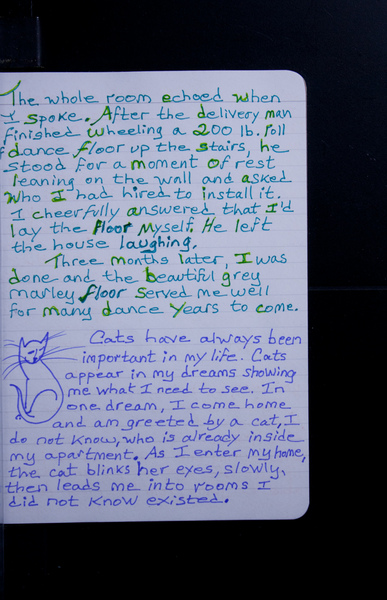 The whole room echoed when
I spoke. After the delivery man
finished wheeling a 200 lb. roll
of dance floor up the stairs, he
stood for a moment of rest
leaning on the wall and asked
who I had hired to install it.
I cheerfully answered that I'd
lay the floor myself. He left
the house laughing.
Three months later, I was
done and the beautiful grey
marley floor served me well
for many dance years to come.
Cats have always been
important in my life. Cats
appear in my dreams showing
me what I need to see. In
one dream, I come home
and am greeted by a cat, I
do not know, who is already inside
my apartment. As I enter my home,
the cat blinks her eyes, slowly,
then leads me into rooms I
did not know existed.